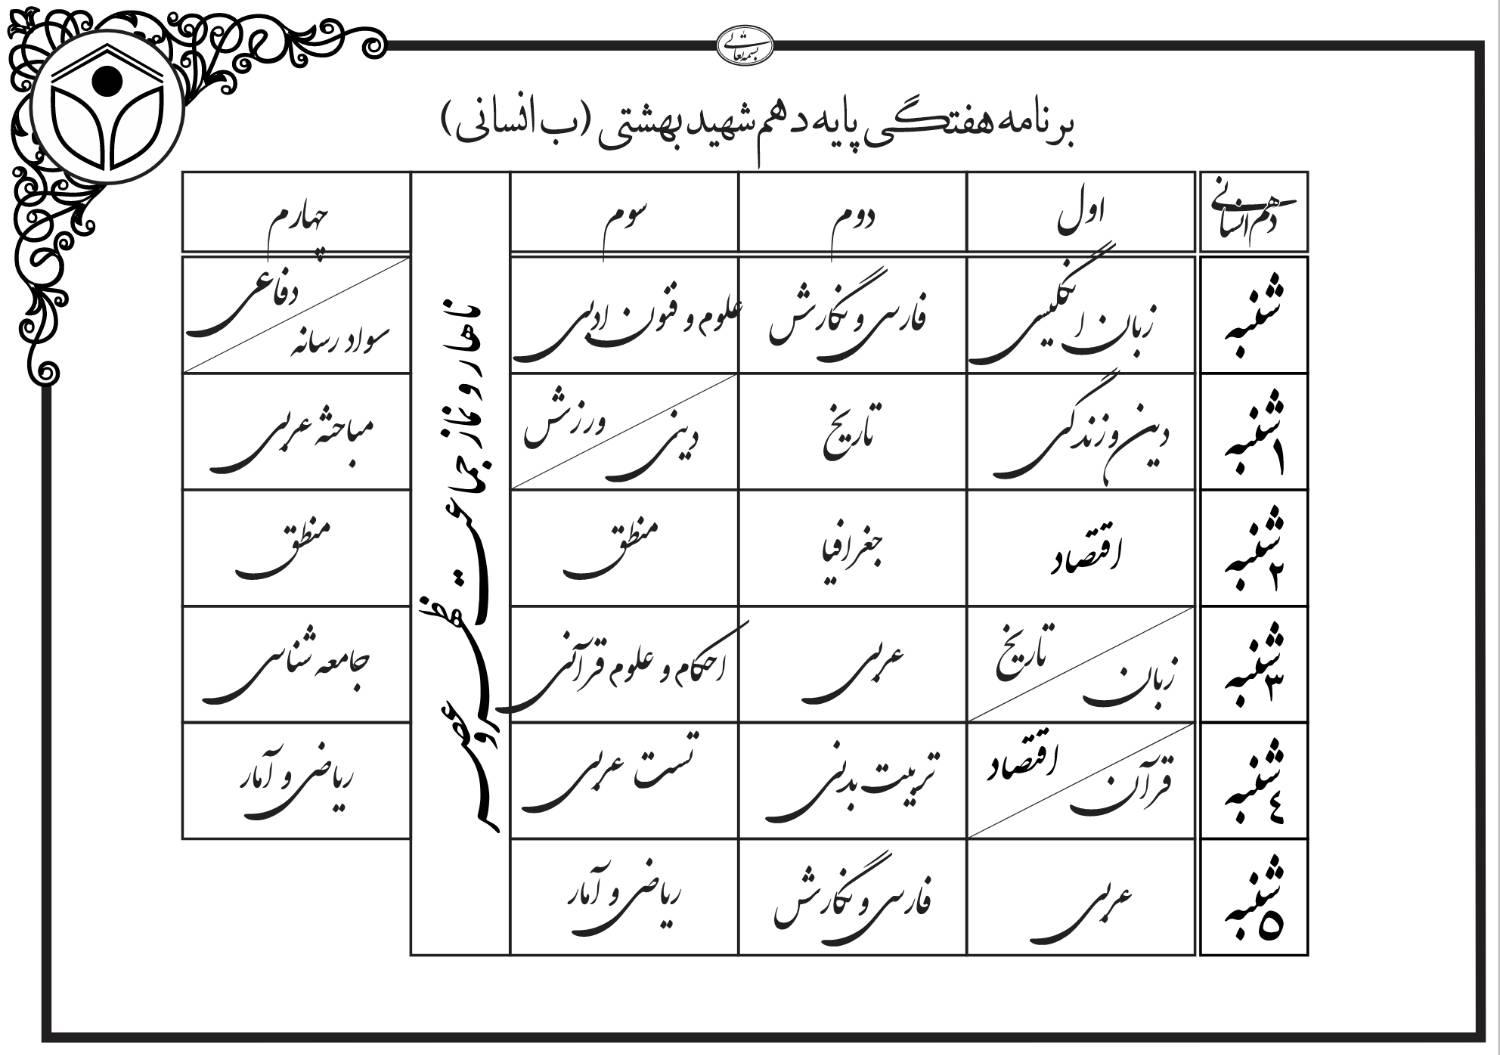 بسمه تعالی
برنامه هفتگی پایه دهم شهید بهشتی (ب انسانی)
دهم انسانی اول دوم سوم چهارم
ناهار و نماز جماعت ظهر و عصر
شنبه زبان انگلیسی فارسی و نگارش علوم و فنون ادبی دفاعی سواد رسانه
۱شنبه دین و زندگی تاریخ ورزش دینی مباحثه عربی
۲شنبه اقتصاد جغرافیا منطق منطق
۳شنبه تاریخ زبان عربی احکام و علوم قرآنی جامعه شناسی
٤شنبه اقتصاد قرآن تربیت بدنی تست عربی ریاضی و آمار
۵شنبه عربی فارسی و نگارش ریاضی و آمار